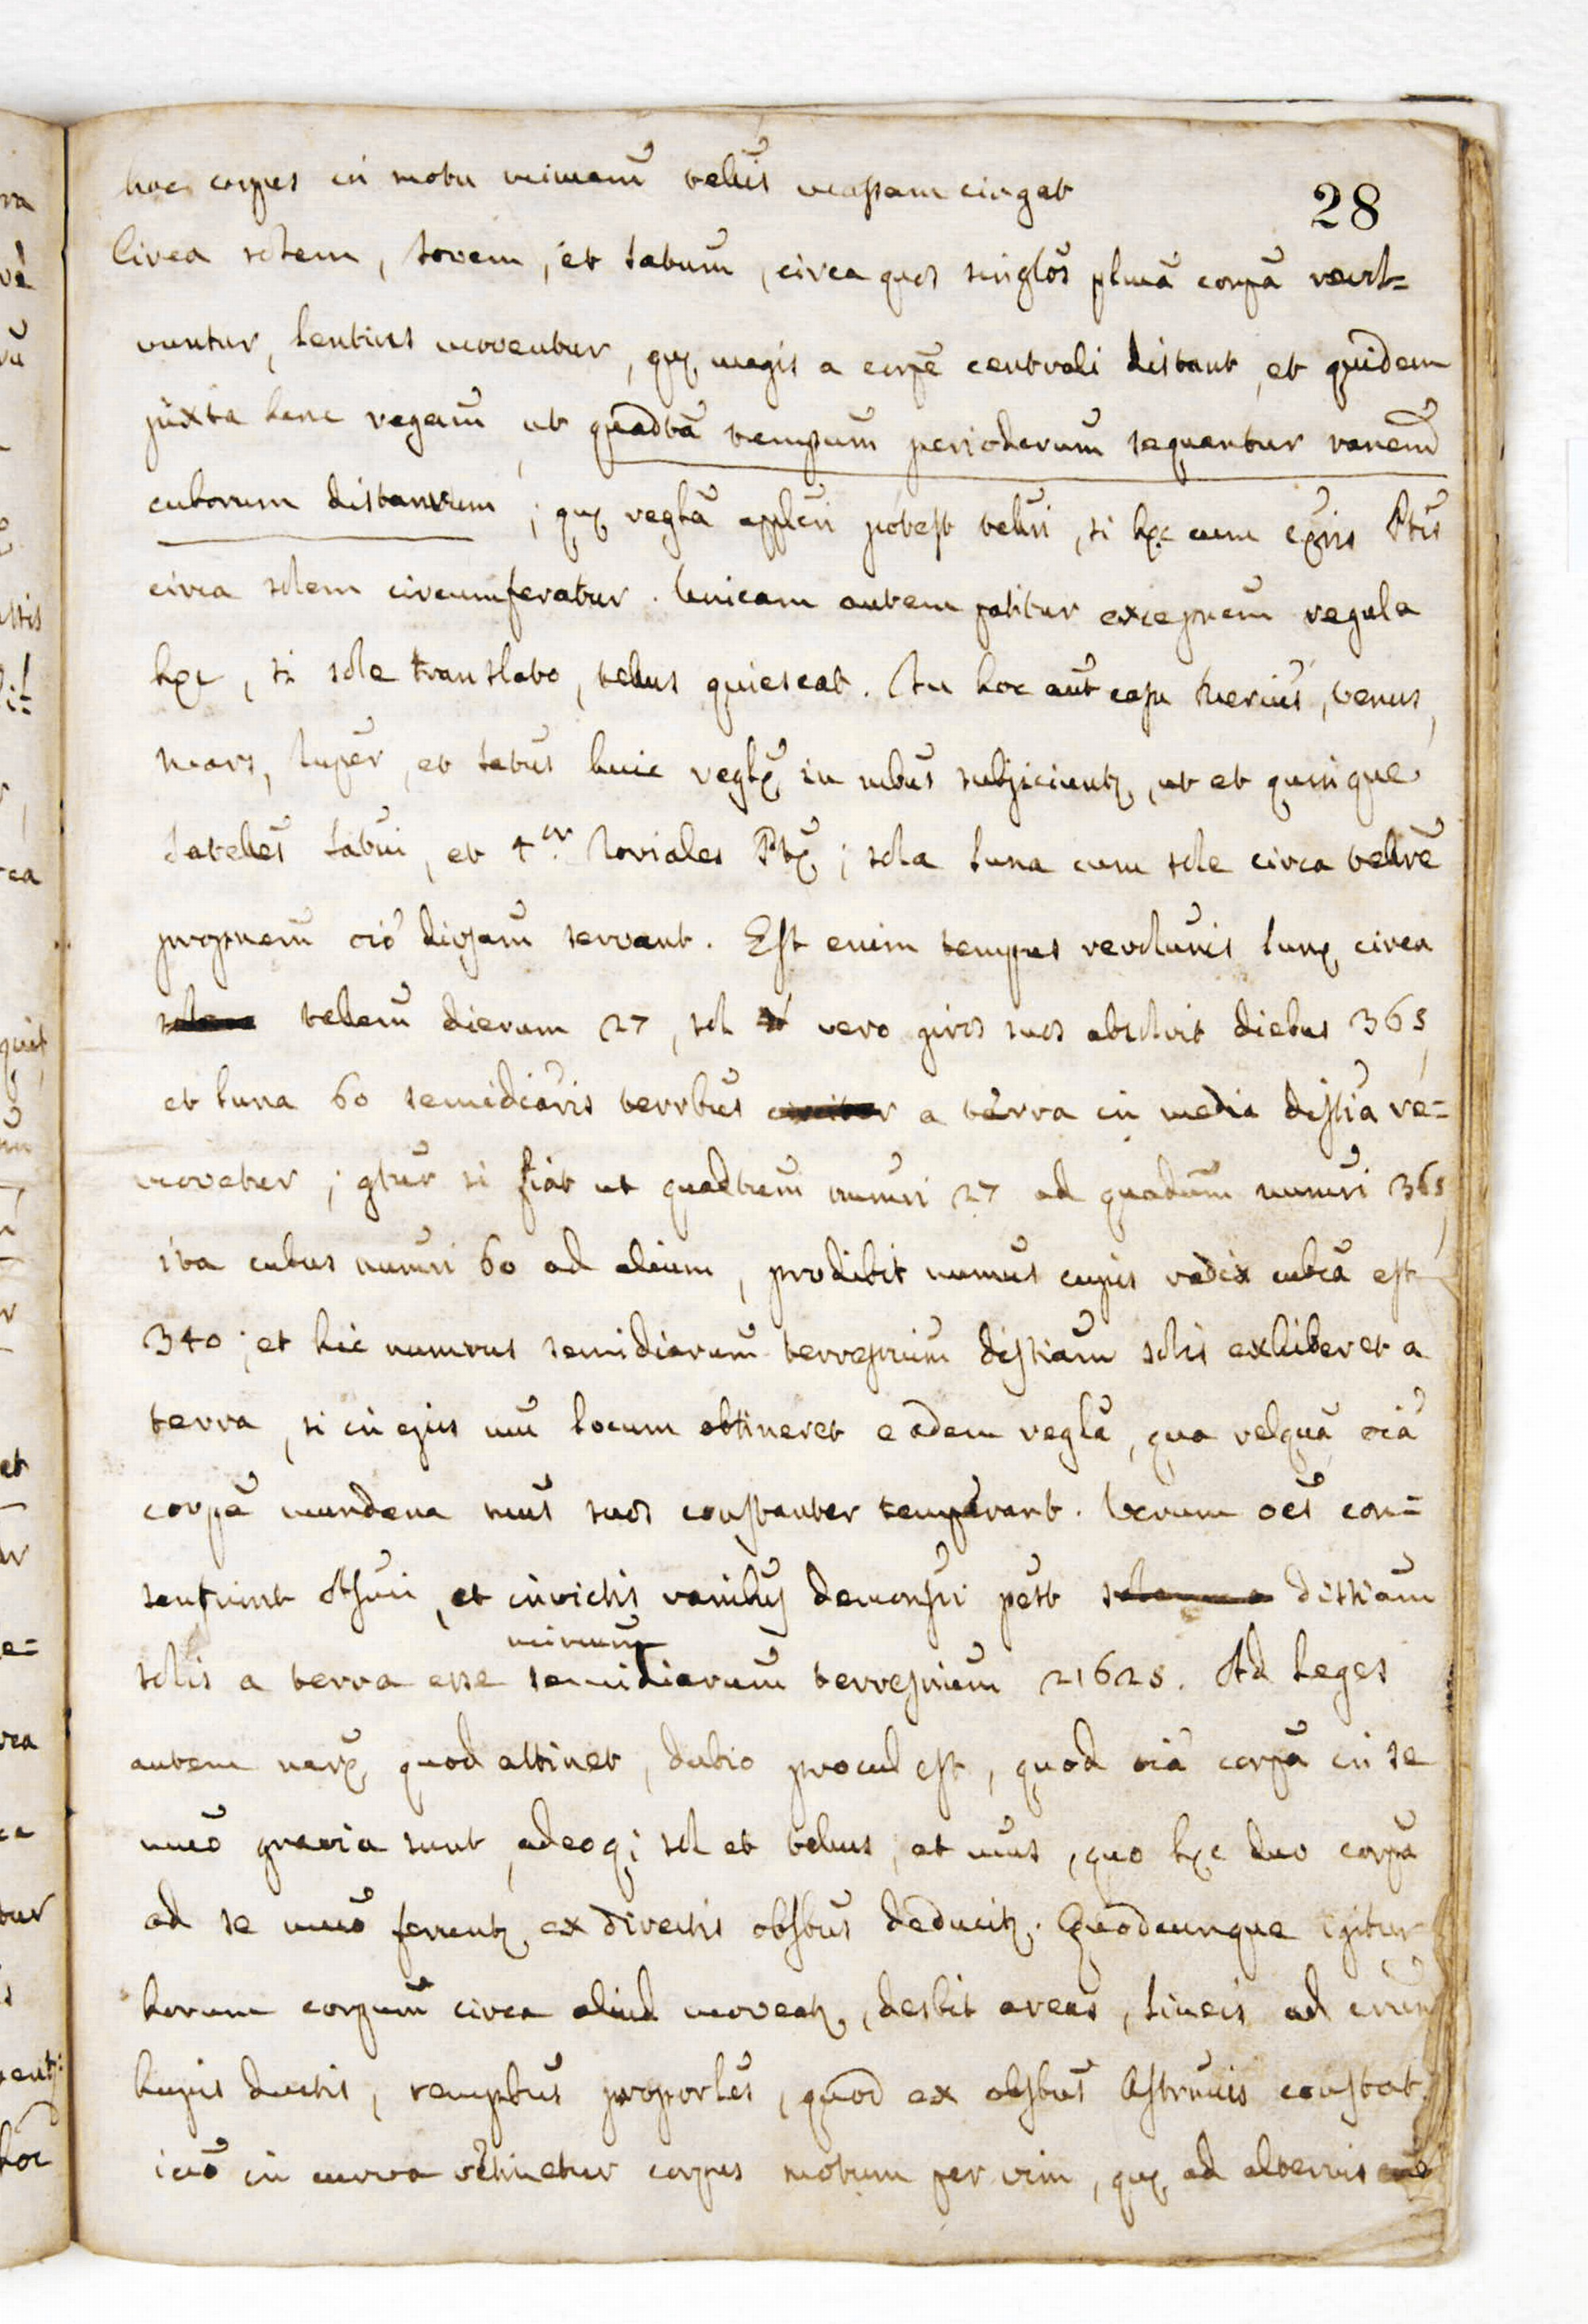 hoc corpus in motu minimum tellus cingat
28
Circa solem, Iovem, et Satum, circa quos singlos plura corpa revol=
vuntur, lentius moventur, quæ magis a corpe centrali distant, et quidem
juxta hanc regam ut quadta tempum periodorum sequantur ranem
cuborum distantium; quæ regla applcri potest telluri, si hæc cum cæris Ptis
circa solem circumferatur. Unicam autem patitur excepnem regula
hæc, si sole translato, tellus quiescat. In hoc aut casu Mercius, Venus,
Mars, Iuper, et Satus huic reglæ in mbus subjiciuntz, ut et quinque
Satelles Satui, et 4or Ioviales Ptæ; sola Luna cum sole circa tellure
propnem oio divsam servant. Est enim tempus revolunis Lunæ circa
tellem dierum 27, sol vero giros suos absolvit diebus 365,
et Luna 60 semidiaris terrbus a terra in media distia re=
movetur; gtur si fiat ut quadtum numri 27 ad quadum numri 365,
ita cubus numri 60 ad alium, prodibit numus cujus radix cubca est
340; et hic numrus semidiarum terrestrium distiam solis exhiberet a
terra, si in ejus mu locum obtineret eadem regla, qua relqua oia
corpa mundana mus suos constanter temperant. Verum oes con=
sentiunt Astmi, et invictis ranibus demonsri pest distiam
minum
solis a terra esse semidiarum terrestrium 21625. Ad leges
autem naræ quod attinet, dubio procul est, quod oia corpa in se
muo gravia sunt, adeoq; sol et tellus, et mus, quo hæc duo corpa
ad se muo feruntz ex directis obsbus deducitz. Quodcunque igitur
horum corpum circa aliud moveatz, desbit areas, lineis ad
hujus ductis, tempbus proporles, quod ex obsbus Astrmis constat.
ico in curva retinetur corpus motum per vim, quæ ad alterius